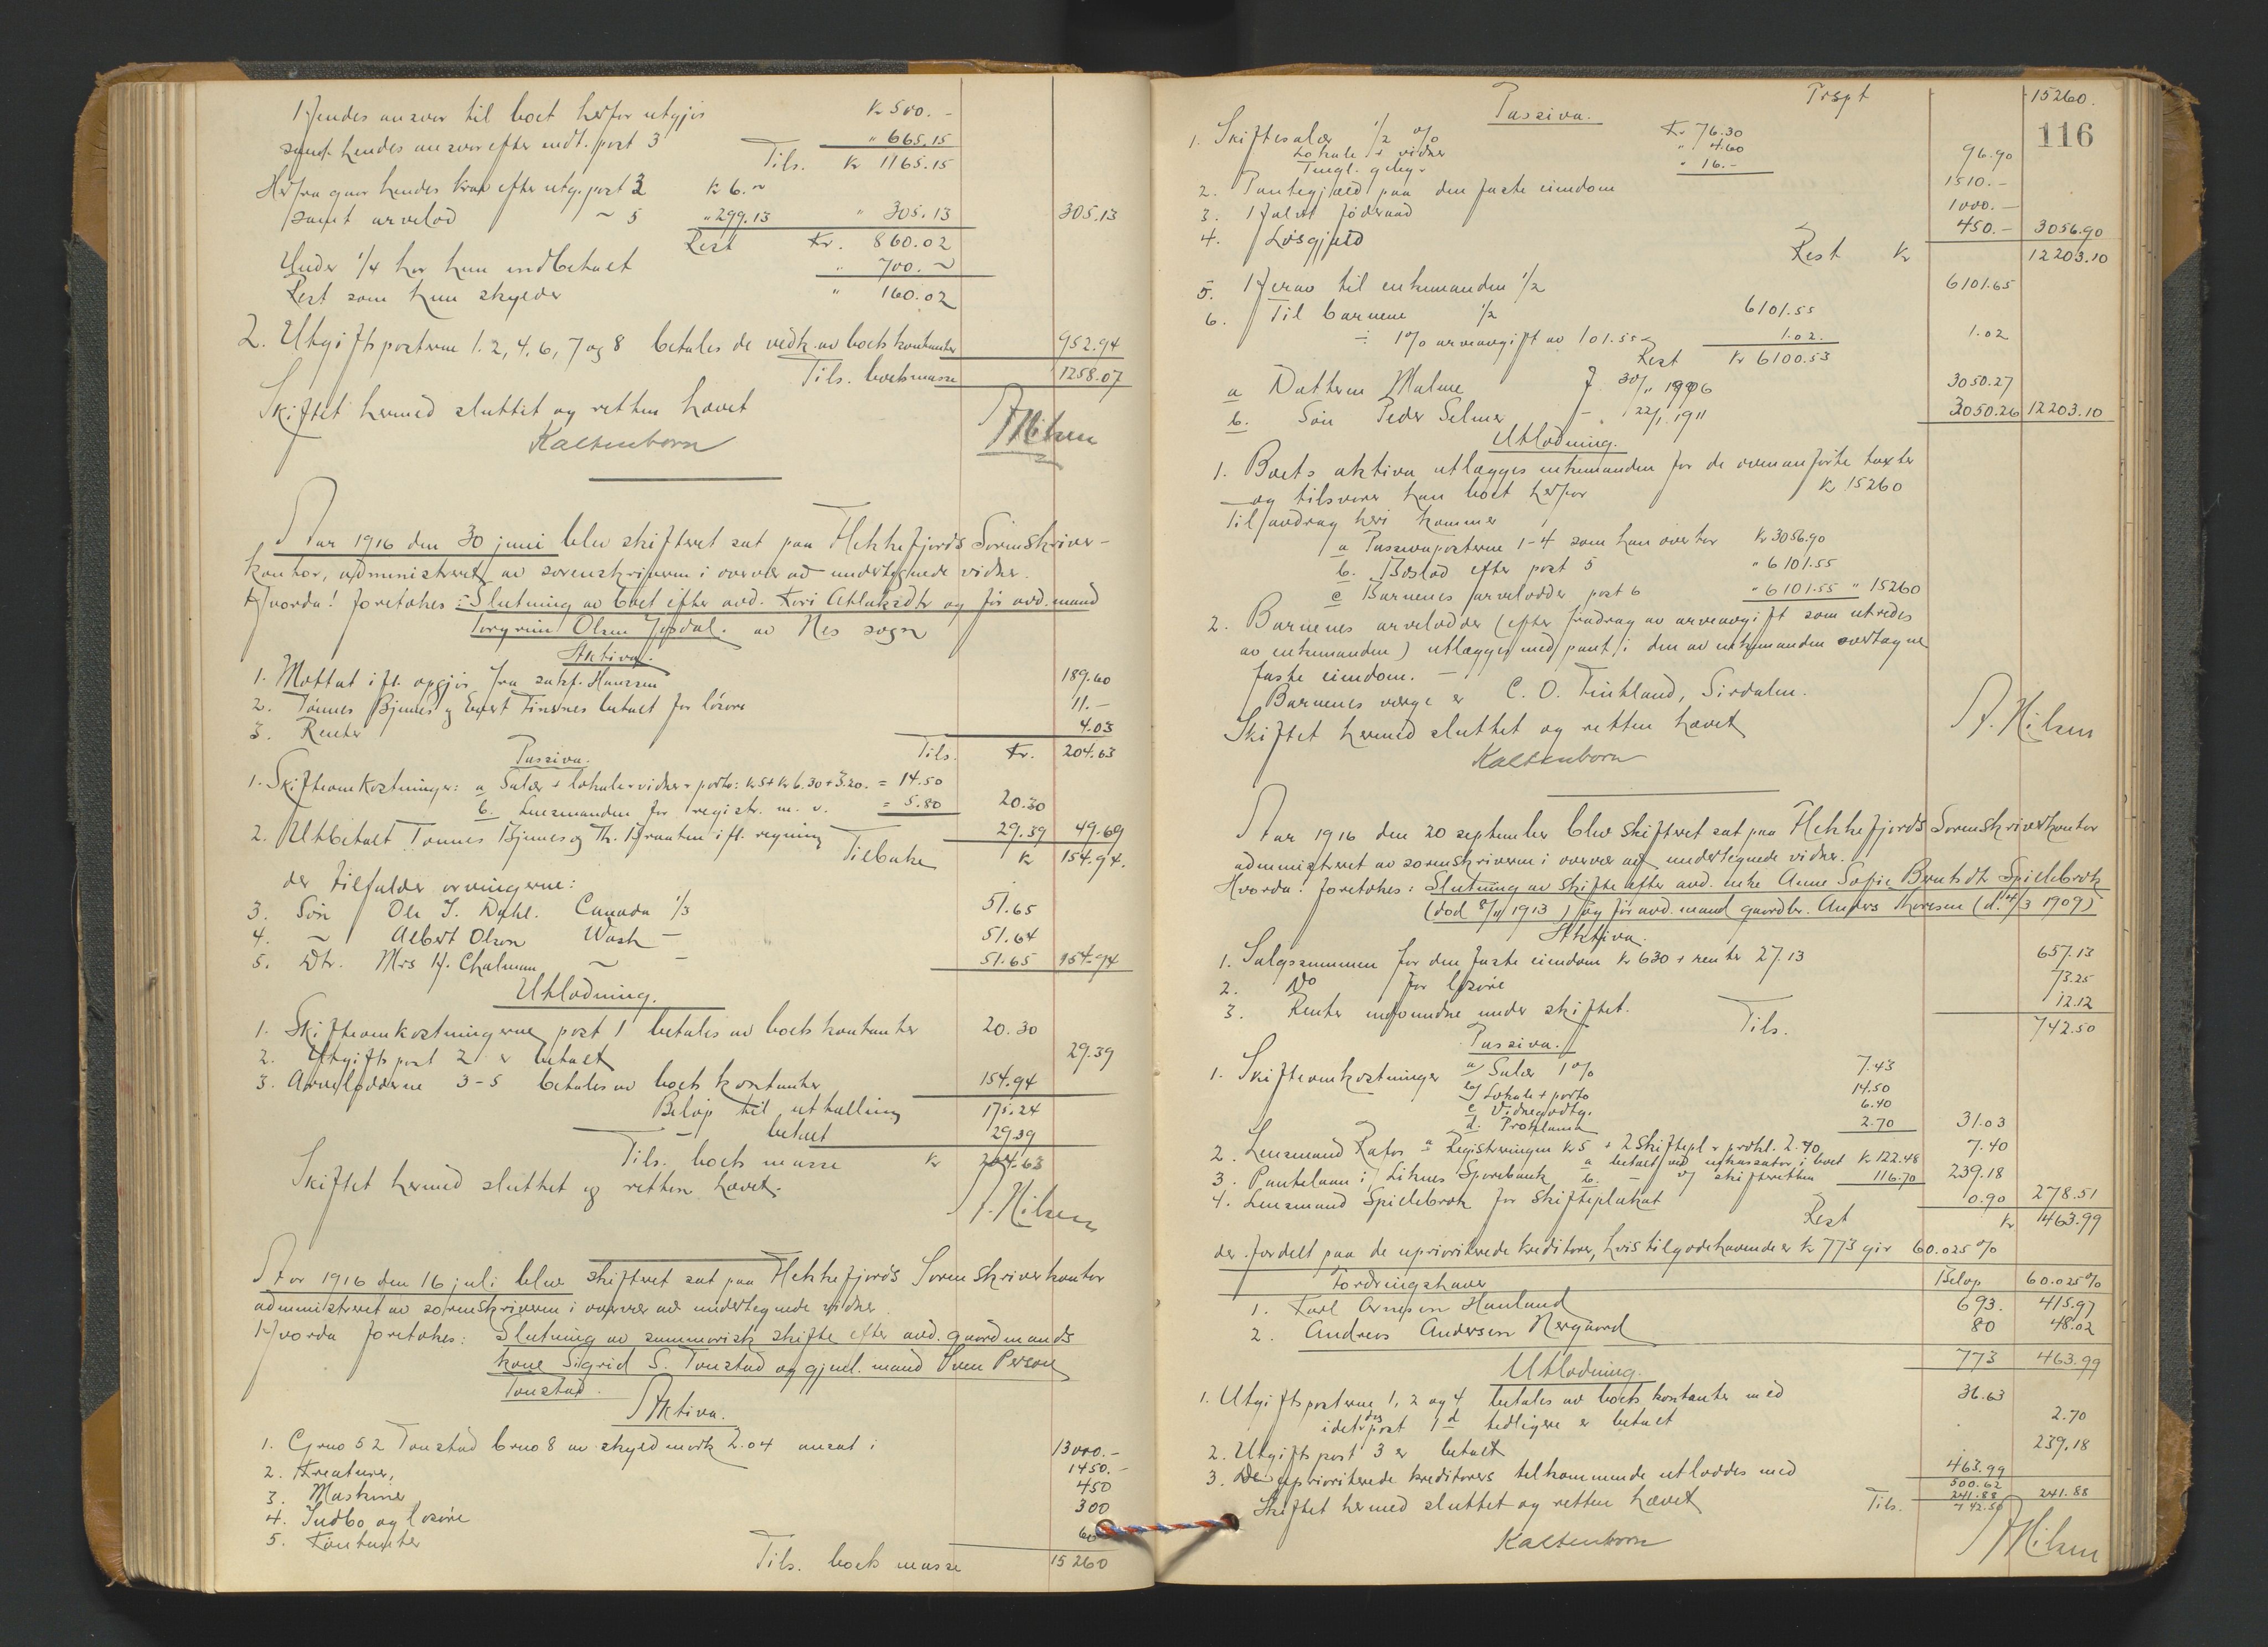 Hendes ansvar til boet herfor utgjør Kr 500.-
samt hendes ansvar efter indt. post 3 " 665.15
Tils. Kr 1165.15
Herfra gaar hendes krav efter utg. post 3 Kr 6.~
samt arvelod ~ 5 " 299.13 " 305.13 305.13
Rest Kr. 860.02
Under 1/4 har hun indbetalt " 700.~
Rest som hun skylder " 160.02
2. Utgiftsposterne 1. 2, 4, 6, 7 og 8 betales de vedk. av boets kontanter 952.94
Tils. boets masse 1258.07
Skiftet hermed sluttet og retten hævet
Kaltenborn
A. Nilsen
Aar 1916 den 30 juni blev skifteret sat paa Flekkefjords Sorenskriver-
kontor, administreret av sorenskriveren i overvær av undertegnede vidner.
Hvorda! foretokes: Slutning av boet efter avd. Kari Atlaksdtr og før avd. mand
Torgrim Olsen Josdal. av Nes sogn
Aktiva.
1. Mottat ifl. opgjør fra sakf. Hanssen 189.60
2. Tønnes Bjunes og Enert Finsnes betalt for løsøre 11.-
3. Renter 4.03
Tils. Kr. 204.63
Passiva.
1. Skifteomkostninger: a Salær + lokale + vidner + porto: kr 5 + kr 6.30 + 3.20. = 14.50
b. Lensmanden for registr. m. v. = 5.80 20.30
2. Utbetalt Tønnes Bjunes og Th. Braaten ifl. regning 29.39 49.69
Tilbake Kr 154.94.
der tilfalder arvingerne:
3. Søn Ole T. Dahl. Canada 1/3 51.65
4. ~ Albert Olson Wash - 51.64
5. Dtr. Mrs H. Chalman ~ - 51.65 154.94
Utlodning.
1. Skifteomkostningerne post 1 betales av boets kontanter 20.30
2. Utgiftspost 2 er betalt 29.39
3. Arvelodderne 3-5 betales av boets kontanter 154.94
Beløp til utbetaling 175.24
- betalt 29.39
Tils. boets masse Kr 204.63
Skiftet hermed sluttet og retten hævet.
A. Nilsen
Aar 1916 den 16 juli blev skifteret sat paa Flekkefjords Sorenskriverkontor
administreret av sorenskriveren i overvær av undertegnede vidner
Hvorda foretokes: Slutning av summarisk skifte efter avd. gaardmands
kone Sigrid S. Tonstad og gjenl. mand Sven Person
Tonstad.
Aktiva.
1. Grno 52 Tonstad brno 8 av skyld mark 2.04 ansat i 13000.-
2. Kreaturer, 1450.-
3. Maskiner 450
4. Indbo og løsøre 300
5. Kontanter 60
Tils. boets masse 15260
Trspt 15260.
116
Passiva.
1. Skiftesalær 1/2 % Kr 76.30
Lokale + vidner " 4.60
Tingl. geby. " 16.- 96.90
2. Pantegjæld paa den faste eiendom 1510.-
3. Halvt føderaad 1000.-
4. Løsgjæld 450.- 3056.90
Rest Kr 12203.10
5. Herav til enkemanden 1/2 6101.65
6. Til barnene 1/2 6101.55
÷ 1% arveavgift av 101.55 1.02. 1.02
Rest Kr 6100.53
a Datteren Malene f 30/11 1906 3050.27
b. Søn Peder Selmer - 22/1 1911 3050.26 12203.10
Utlodning.
1. Boets aktiva utlægges enkemanden for de ovenanførte takster
og tilsvarer han boet herfor Kr 15260
Til fradrag heri kommer
a Passivaposterne 1-4 som han overtar Kr 3056.90
b. Boslod efter post 5 " 6101.55
c Barnenes arvelodder post 6 " 6101.55 " 15260
2. Barnenes arvelodder (efter fradrag av arveavgift som utredes
av enkemanden) utlægges med pant i den av enkemanden overtagne
faste eiendom. -
Barnenes værge er C. O. Fintland, Sirdalen.
Skiftet hermed sluttet og retten hævet
A. Nilsen
Kaltenborn
Aar 1916 den 20 september blev skifteret sat paa Flekkefjords Sorenskriverkontor
administreret av sorenskriveren i overvær av undertegnede vidner.
Hvorda! foretokes: Slutning av skifte efter avd. enke Anne Sofie Berntsdtr Spillebrok
(død 8/11 1913) og før avd. mand gaardbr. Anders Thoresen (d. 14/3 1909)
Aktiva.
1. Salgssummen for den faste eiendom Kr 630 + renter 27.13 657.13
2. Do for løsøre 73.25
3. Renter indvundne under skiftet. 12.12
Tils. 742.50
Passiva.
1. Skifteomkostninger a) Salær 1% 7.43
b) Lokale + porto 14.50
c Vidnegodtg. 6.40
d. Proklama 2.70 31.03
2. Lensmand Rafos a Registreringen kr 5 + 2 skiftepl + prokl. 2.40 7.40
3. Pantelaan i Liknes Sparebank a betalt ved inkassator i boet Kr 122.48
b. - av skifteretten 116.70 239.18
4. Lensmand Spillebrok for skifteplakat 0.90 278.51
Rest Kr 463.99
der fordelt paa de uprioriterede kreditorer, hvis tilgodehavende er Kr 773 gir 60.025 %
Fordringshaver Beløp 60.025%
1. Karl Arnesen Hauland 693. 415.97
2. Andreas Andersen Nergaard 80 48.02
773 463.99
Utlodning.
1. Utgiftsposterne 1, 2 og 4 betales av boets kontanter med 36.63
idet dog post 1 d tidligere er betalt 2.70
2. Utgiftspost 3 er betalt 239.18
3. De uprioriterede kreditorers tilkommende utloddes med 463.99
500.62
241.88 241.88
Skiftet hermed sluttet og retten hævet Tils. 742.50
Kaltenborn
A. Nilsen